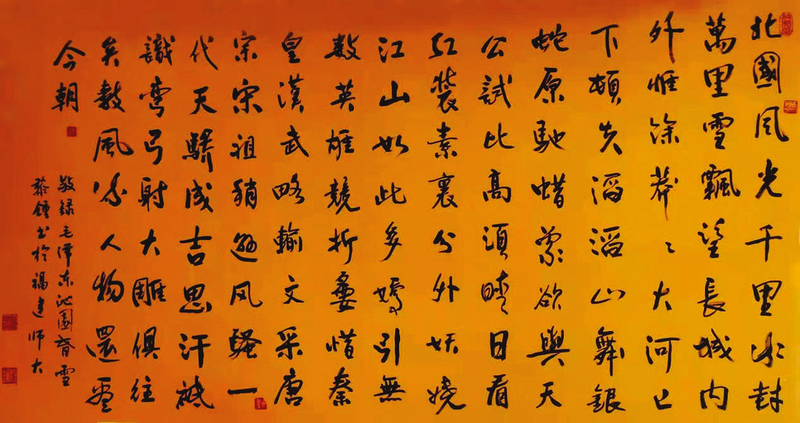 北國风光千里冰封
萬里雪飄望長城内
外惟馀莽〻大河上
下頓失滔滔山舞銀
蛇原馳蜡象欲與天
公試比高須晴日看
红装素裹分外妖嬈
江山如此多嬌引無
数英雄競折腰惜秦
皇漢武略輸文采唐
宗宋祖稍逊风騷一
代天驕成吉思汗祗
識彎弓射大雕俱往
矣数風流人物還看
今朝
敬録毛澤东沁園春雪
书於福建師大